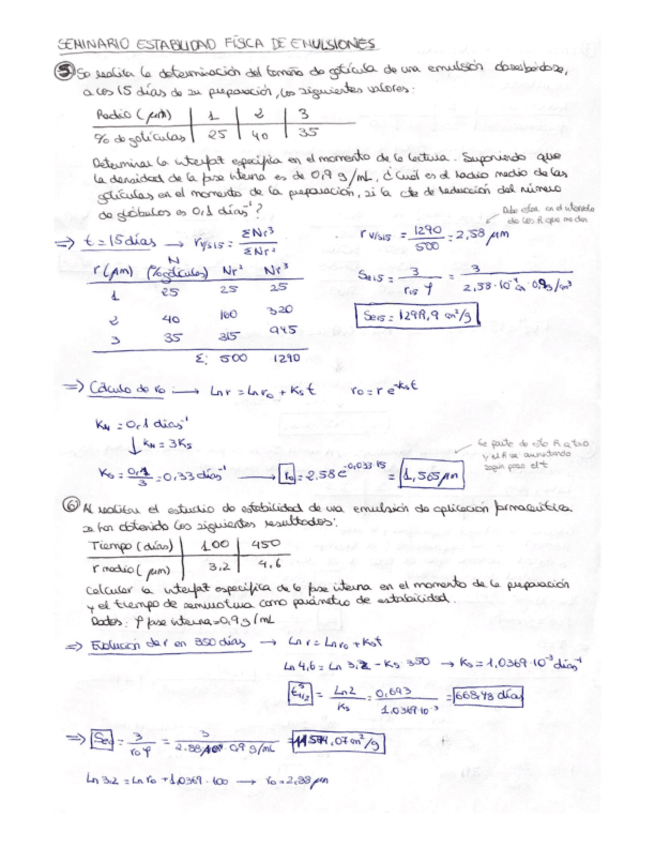 SEMINARIO ESTABILIDAD FÍSICA DE EMULSIONES
⑤ Se realiza la determinación del tamaño de gotícula de una emulsión
a los 15 días de su preparación, los siguientes valores:
Radio (μm) | 1 | 2 | 3
% de gotículas | 25 | 40 | 35
Determinar la interfat específica en el momento de la lectura. Suponiendo que
la densidad de la fase interna es de 0,9 g/mL, ¿Cuál es el radio medio de las
gotículas en el momento de la preparación, si la cte de reducción del número
de glóbulos es 0,1 días⁻¹?
Debe estar en el intervalo
de los R que me dan
⇒ t = 15 días → r v/s15 = ΣNr³ / ΣNr²
r v/s15 = 1290 / 500 = 2,58 μm
r (μm) N (% gotículas) Nr² Nr³
1 25 25 25
2 40 160 320
3 35 315 945
Σ: 500 1290
Se15 = 3 / r15 φ = 3 / 2,58·10⁻⁴ cm · 0,9 g/cm³
Se15 = 1291,9 cm²/g
⇒ Cálculo de r0 → Ln r = Ln r0 + Ks t r0 = r e^-Ks t
KN = 0,1 días⁻¹
↓ KN = 3Ks
Se parte de este R a t=0
y el R va aumentando
según pasa el t
Ks = 0,1 / 3 = 0,33 días⁻¹ → r0 = 2,58 e^-0,033·15 = 1,565 μm
⑥ Al realizar el estudio de estabilidad de una emulsión de aplicación farmacéutica
se han obtenido los siguientes resultados:
Tiempo (días) | 100 | 450
r medio (μm) | 3,2 | 4,6
Calcular la interfat específica de la fase interna en el momento de la preparación
y el tiempo de semiruptura como parámetro de estabilidad.
Datos: φ fase interna = 0,9 g/mL
⇒ Evolución de r en 350 días → Ln r = Ln r0 + Ks t
Ln 4,6 = Ln 3,2 - Ks 350 → Ks = 1,0369·10⁻³ días⁻¹
t½ˢ = Ln 2 / Ks = 0,693 / 1,0369·10⁻³ = 668,48 días
⇒ Se0 = 3 / r0 φ = 3 / 0,9 g/mL = 11574,07 cm²/g
Ln 3,2 = Ln r0 + 1,0369 · 100 → r0 = 2,88 μm